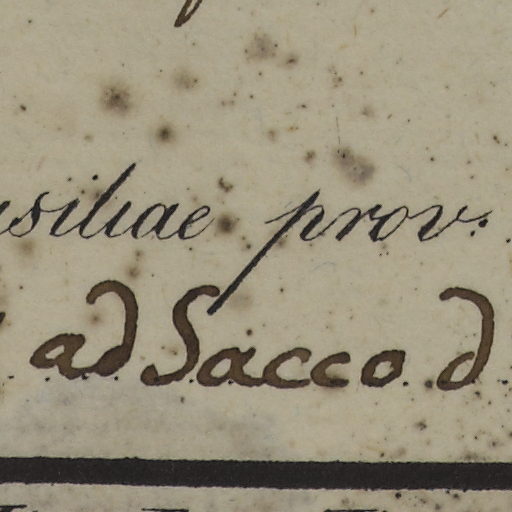 asiliae prov.
ad Sacco d